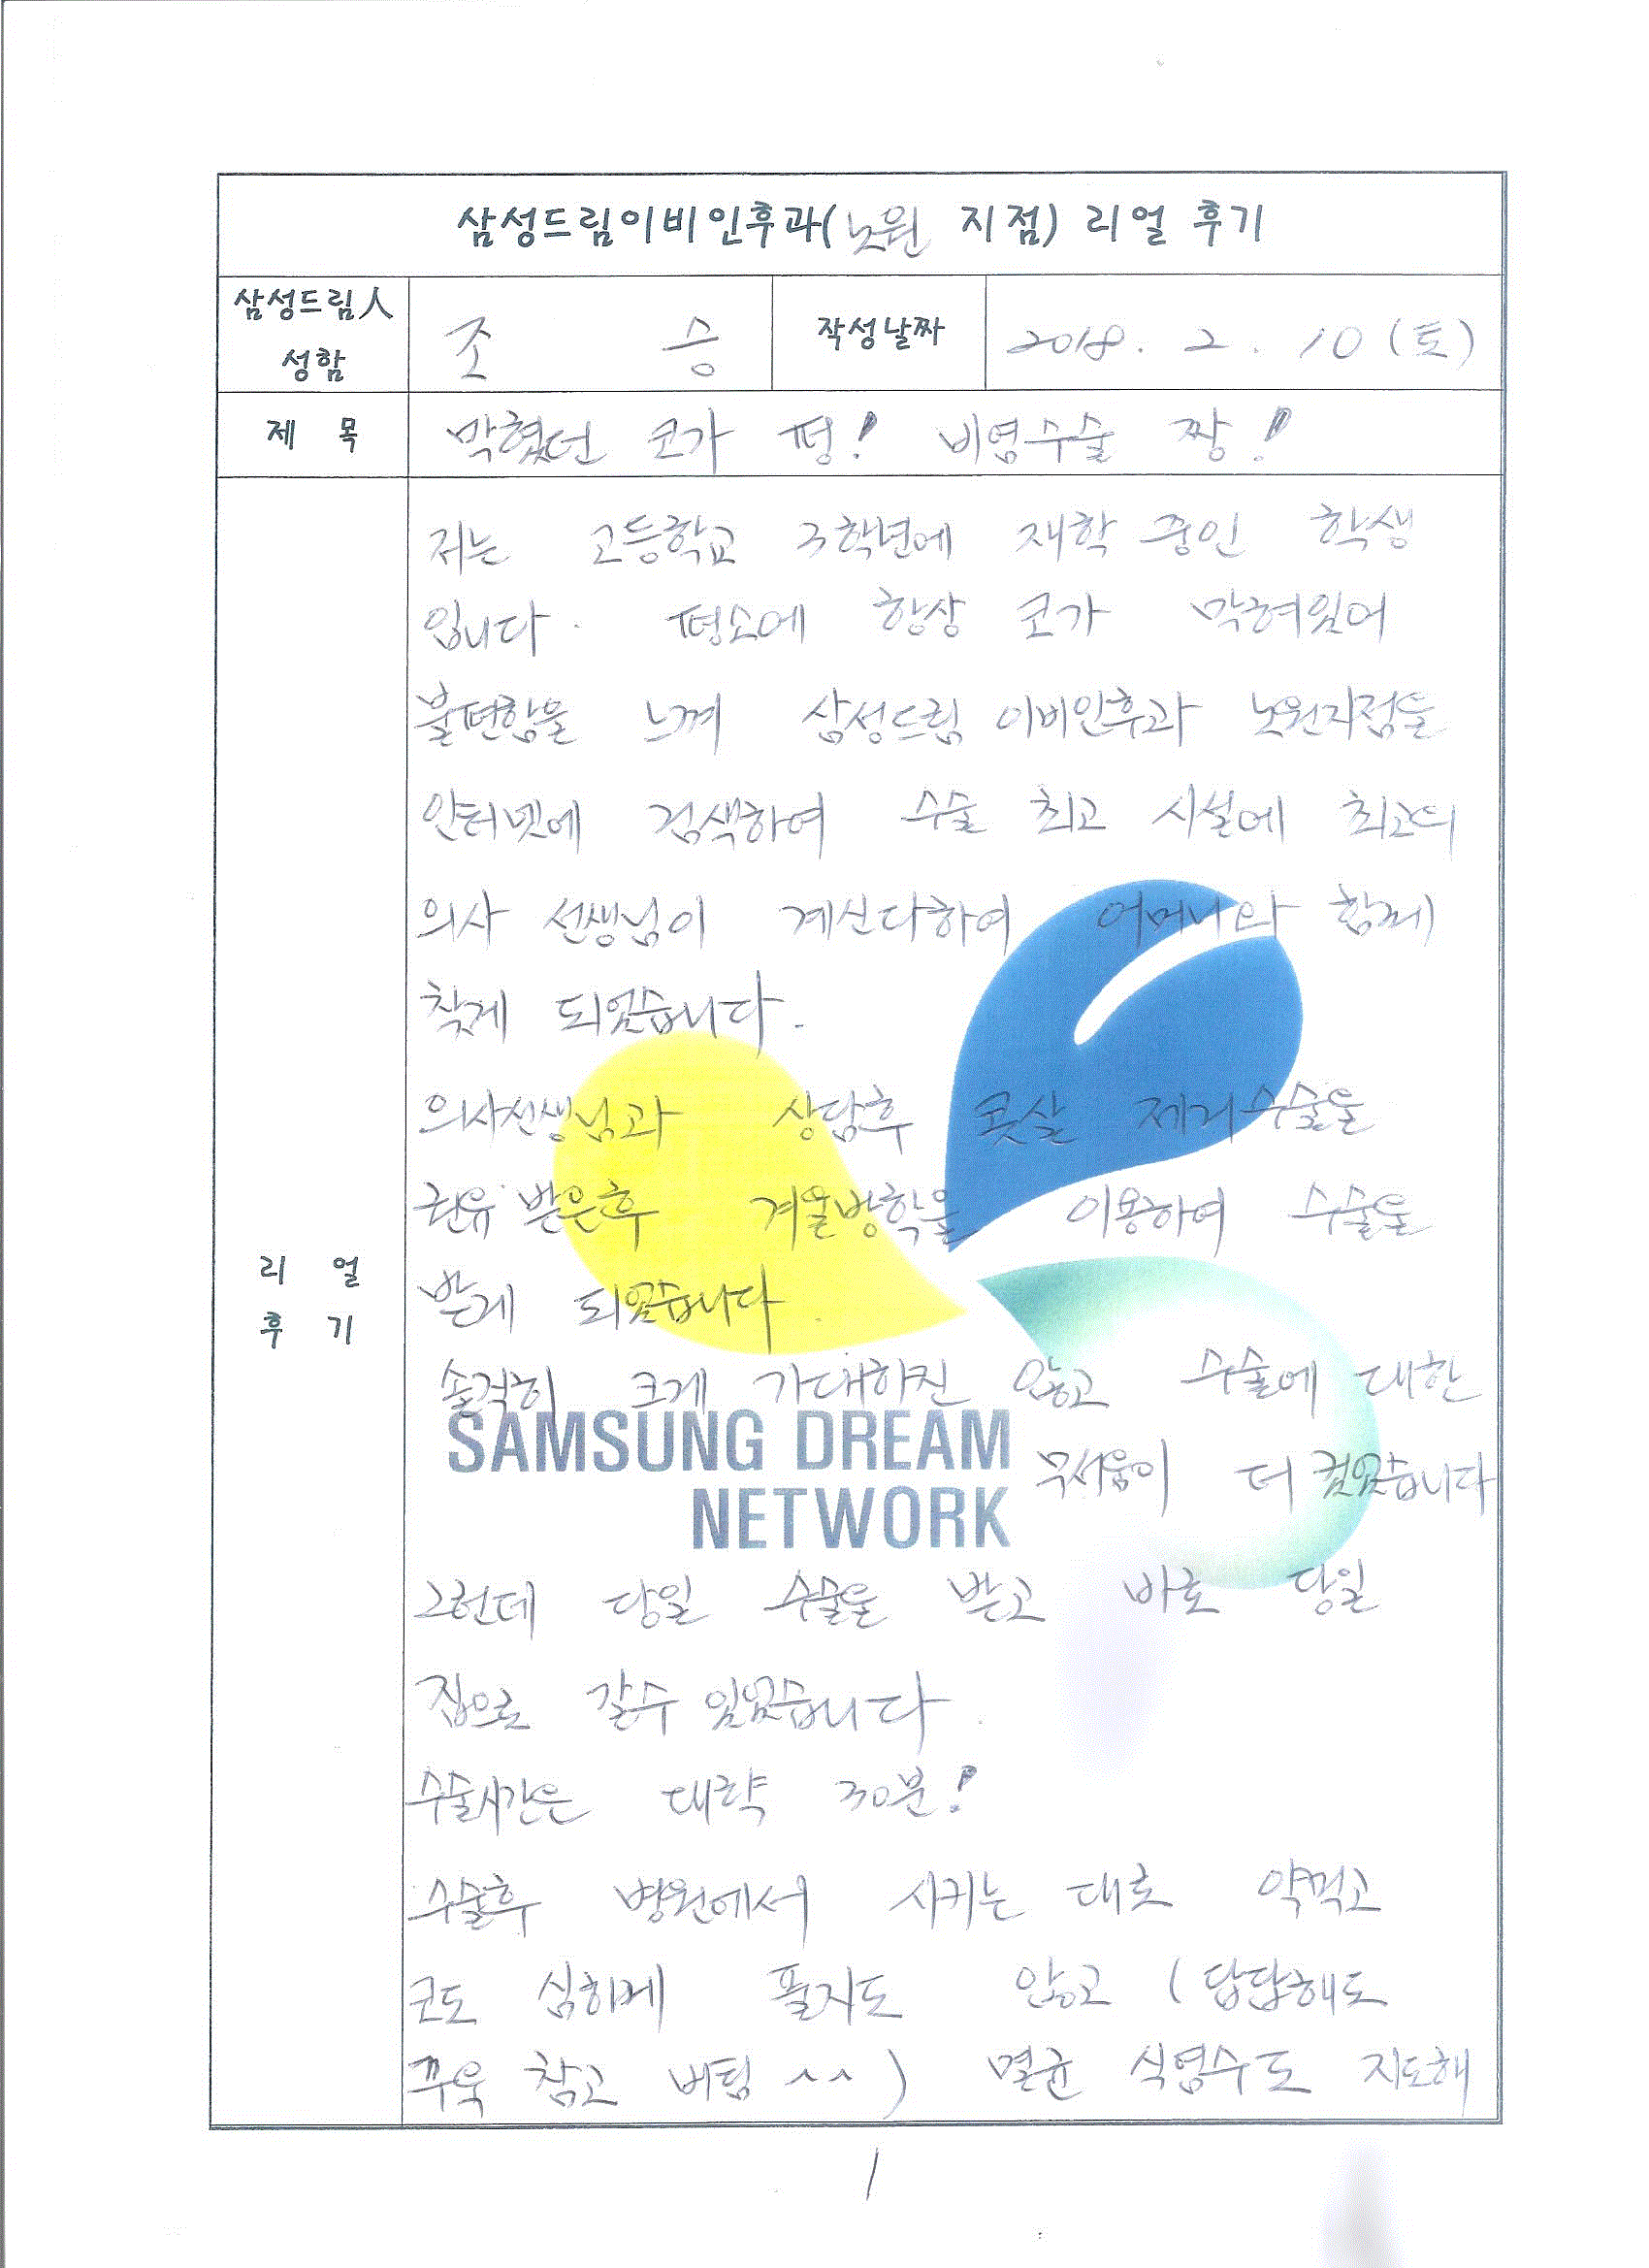 삼성드림이비인후과(노원 지점) 리얼 후기
삼성드림人 성함
조 승
작성날짜
2018. 2. 10 (토)
제 목
막혔던 코가 펑! 비염수술 짱!
리 얼 후 기
저는 고등학교 3학년에 재학 중인 학생
입니다. 평소에 항상 코가 막혀있어
불편함을 느껴 삼성드림 이비인후과 노원지점을
인터넷에 검색하여 수술 최고 시설에 최고의
의사 선생님이 계신다하여 어머니와 함께
찾게 되었습니다.
의사선생님과 상담후 콧살 제거수술을
권유 받은후 겨울방학을 이용하여 수술을
받게 되었습니다.
솔직히 크게 기대하진 않고 수술에 대한
무서움이 더 컸었습니다
SAMSUNG DREAM
NETWORK
그런데 당일 수술을 받고 바로 당일
집으로 갈수 있었습니다.
수술시간은 대략 30분!
수술후 병원에서 시키는 대로 약먹고
코도 심하게 풀지도 않고 (답답해도
꾸욱 참고 버팀 ^^) 멸균 식염수도 지도해
1